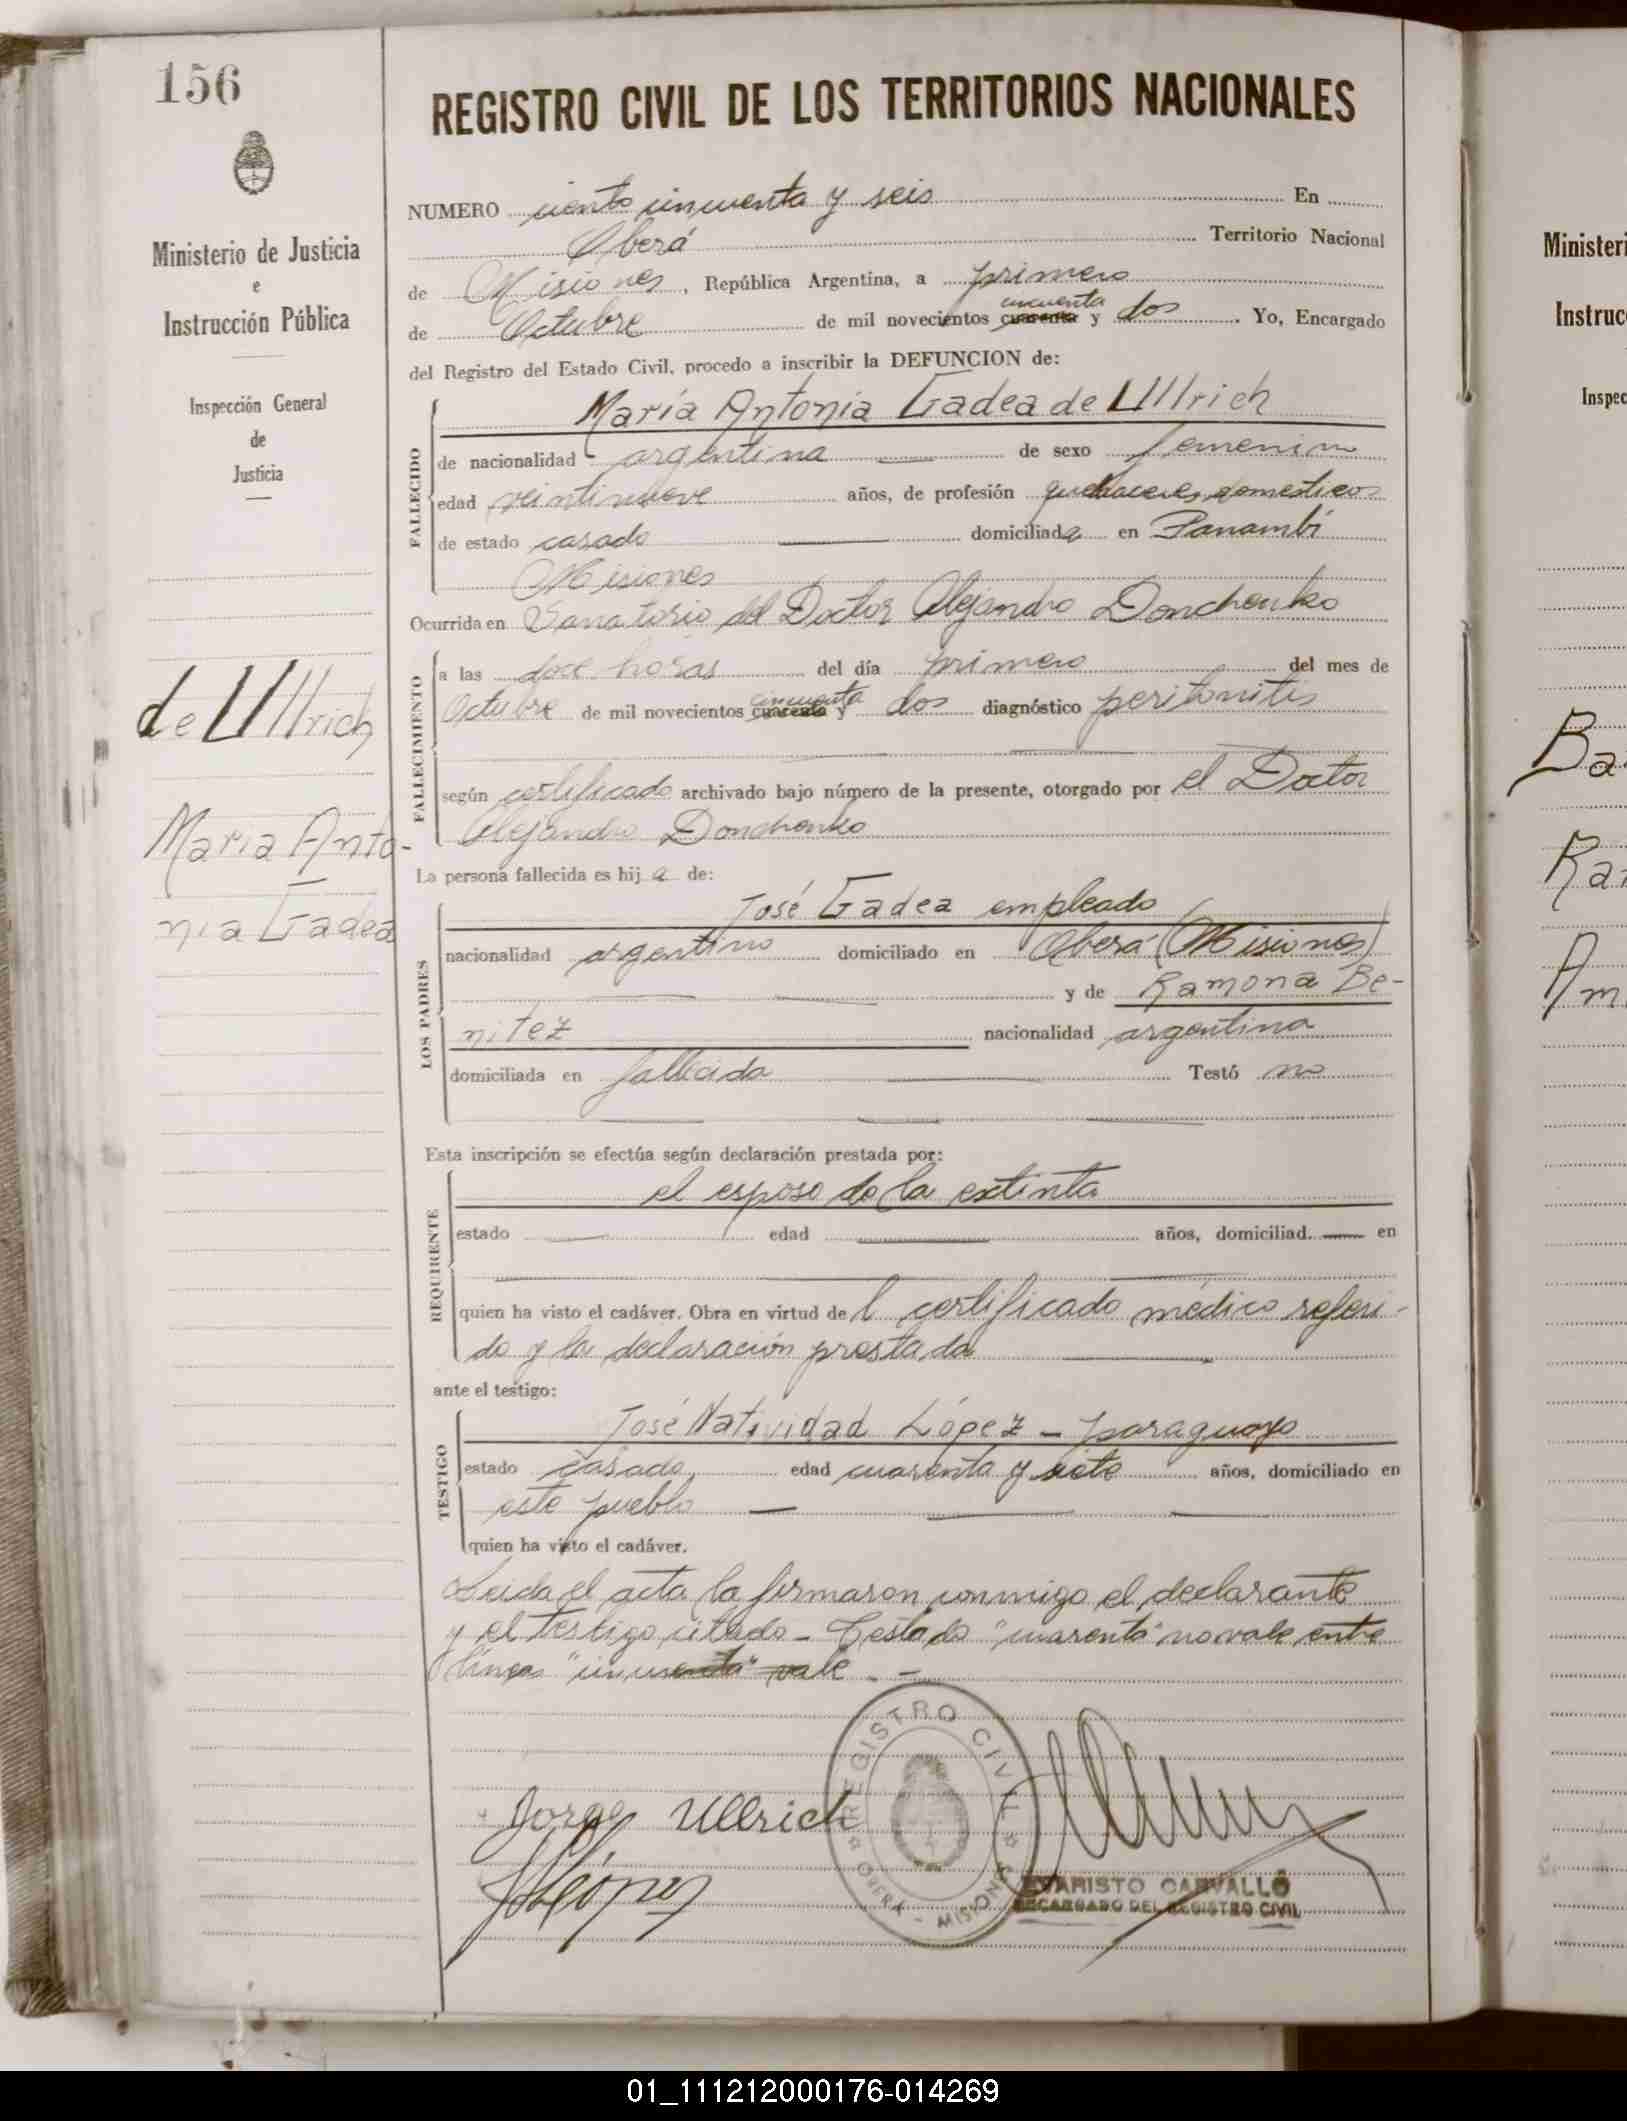 156
REGISTRO CIVIL DE LOS TERRITORIOS NACIONALES
Ministerio de Justicia
e
Instrucción Pública
Inspección General
de
Justicia
de Ullrich
Maria Anto-
nia Gadea
NUMERO ciento cincuenta y seis En
Oberá Territorio Nacional
de Misiones, República Argentina, a primero
cincuenta
de Octubre de mil novecientos cuarenta y dos. Yo, Encargado
del Registro del Estado Civil, procedo a inscribir la DEFUNCION de:
FALLECIDO
María Antonia Gadea de Ullrich
de nacionalidad argentina de sexo femenino
edad veintinueve años, de profesión quehaceres domesticos
de estado casada domiciliada en Panambí
Misiones
Ocurrida en Sanatorio del Doctor Alejandro Donchenko
FALLECIMIENTO
a las doce horas del día primero del mes de
cincuenta
Octubre de mil novecientos cuarenta y dos diagnóstico peritonitis
según certificado archivado bajo número de la presente, otorgado por el Doctor
Alejandro Donchenko
La persona fallecida es hija de:
LOS PADRES
José Gadea empleado
nacionalidad argentino domiciliado en Oberá (Misiones)
y de Ramona Be-
nitez nacionalidad argentina
domiciliada en fallecida Testó no
Esta inscripción se efectúa según declaración prestada por:
REQUIRENTE
el esposo de la extinta
estado edad años, domiciliad. en
quien ha visto el cadáver. Obra en virtud del certificado médico referi-
do y la declaración prestada
ante el testigo:
TESTIGO
José Natividad López - paraguayo
estado casado edad cuarenta y siete años, domiciliado en
este pueblo
quien ha visto el cadáver.
Leida el acta la firmaron conmigo el declarante
y el testigo citado - Testado "cuarenta" no vale entre
líneas "cincuenta" vale. -
Jorge Ullrich
JNLópez
REGISTRO CIVIL
OBERA - MISIONES
EVARISTO CARVALLO
ENCARGADO DEL REGISTRO CIVIL
Minister
Instruc
Inspec
Ba
Ra
Am
01_111212000176-014269